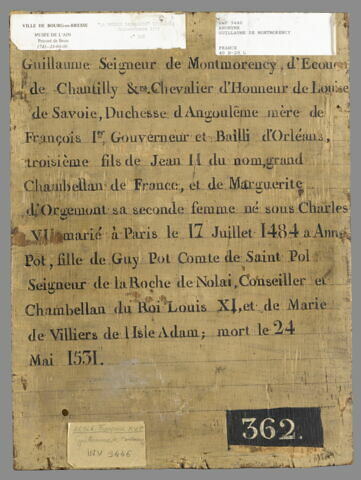 VILLE DE BOURG-en-BRESSE
MUSÉE DE L'AIN
ANONYME
GUILLAUME DE MONTMORENCY
FRANCE
Guillaume Seigneur de Montmorency, d'Ecouen
de Chantilly &ca. Chevalier d'Honneur de Louise
de Savoie, Duchesse d'Angoulême mère de
François Ier, Gouverneur et Bailli d'Orléans,
troisième fils de Jean II du nom, grand
Chambellan de France, et de Marguerite
d'Orgemont sa seconde femme né sous Charles
VII marié à Paris le 17 Juillet 1484 a Anne
Pot, fille de Guy Pot Comte de Saint Pol
Seigneur de la Roche de Nolai, Conseiller et
Chambellan du Roi Louis XI, et de Marie
de Villiers de l'Isle Adam; mort le 24
Mai 1531.
362.
INV 9446